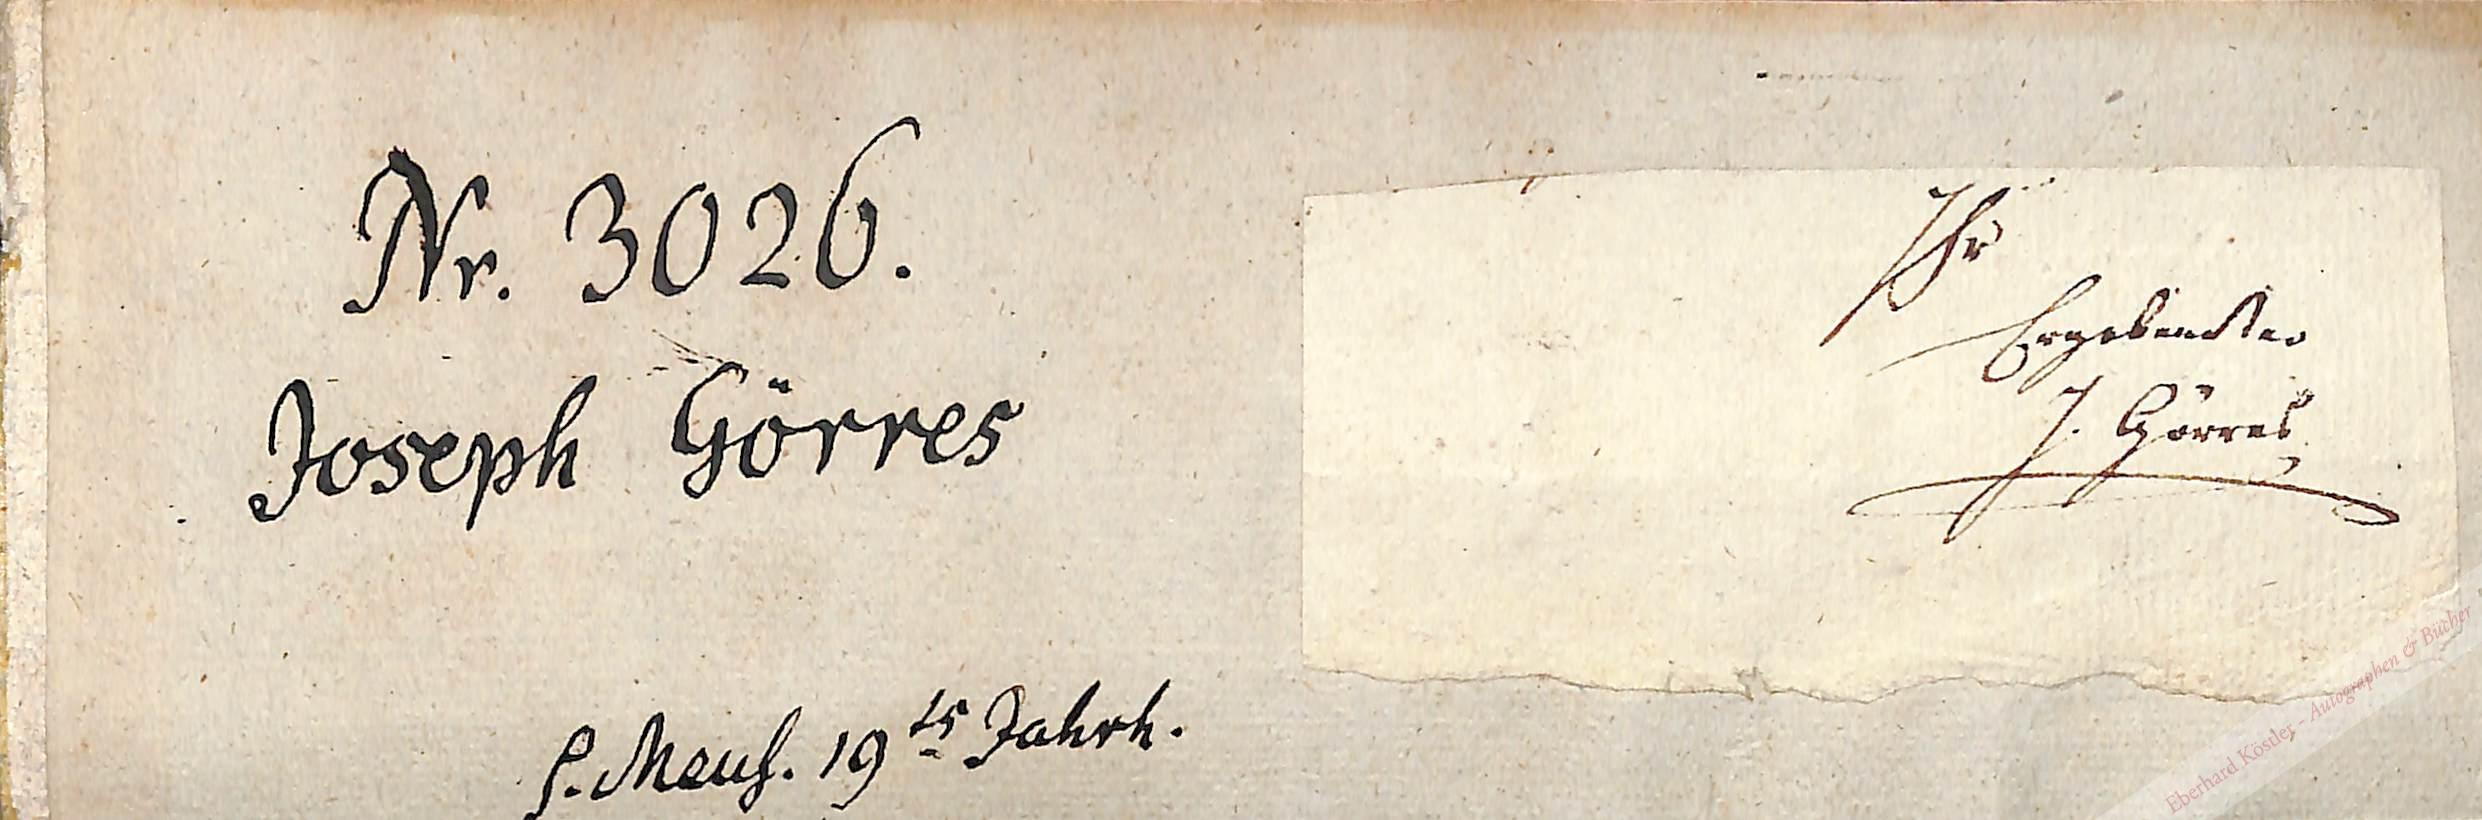 Nr. 3026.
Joseph Görres
s. Meus. 19ts Jahrh.
Ihr
Ergebenster
J. Görres
Eberhard Köstler - Autographen & Bücher